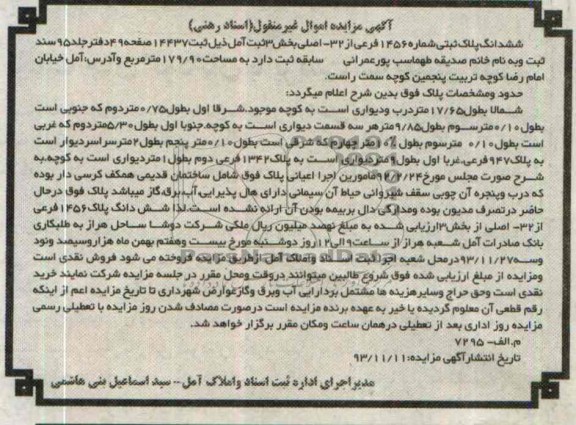 آگهی مزایده اموال غیرمنقول(اسناد رهنی)
ششدانگ پلاک ثبتی شماره ۱۴۵۶ فرعی از ۳۲- اصلی بخش ۳ ثبت آمل ذیل ثبت ۱۴۴۳۷ صفحه ۴۹ دفتر جلد ۹۵ سند
ثبت وبه نام خانم صدیقه طهماسب پورعمرانی سابقه ثبت دارد به مساحت ۱۷۹/۹۰ مترمربع وآدرس:آمل خیابان
امام رضا کوچه تربیت پنجمین کوچه سمت راست.
حدود ومشخصات پلاک فوق بدین شرح اعلام میگردد:
شمالا بطول ۱۷/۶۵ متردرب ودیواری است به کوچه موجود.شرقا اول بطول ۰/۷۵ متردوم که جنوبی است
بطول ۰/۱۰ مترسوم بطول ۹/۸۵ مترهر سه قسمت دیواری است به کوچه.جنوبا اول بطول ۵/۳۰ متردوم که غربی
است بطول ۰/۱۰ مترسوم بطول ۱۰ مترچهارم که شرقی است بطول ۰/۱۰ متر پنجم بطول ۲ مترسراسردیوار است
به پلاک ۹۴۷ فرعی.غربا اول بطول ۹ متردیواری است به پلاک ۱۳۴۲ فرعی دوم بطول ۱ متردیواری است به کوچه.به
شرح صورت مجلس مورخ ۹۲/۲/۲۴ مامورین اجرا اعیانی پلاک فوق شامل ساختمان قدیمی همکف کرسی دار بوده
که درب وپنجره آن چوبی سقف شیروانی حیاط آن سیمانی دارای هال پذیرایی،آب،برق،گاز میباشد پلاک فوق درحال
حاضر درتصرف مدیون بوده ومدارکی دال بربیمه بودن آن ارائه نشده است.لذا شش دانگ پلاک ۱۴۵۶ فرعی
از ۳۲- اصلی از بخش ۳ ارزیابی شده به مبلغ نهصد میلیون ریال ملکی شرکت دوشا ساحل هراز به طلبکاری
بانک صادرات آمل شعبه هراز از ساعت ۹ الی ۱۲ روز دوشنبه مورخ بیست وهفتم بهمن ماه هزاروسیصد ونود
وسه ۹۳/۱۱/۲۷ درمحل شعبه اجرا ثبت اسناد واملاک آمل ازطریق مزایده فروخته می شود فروش نقدی است
ومزایده از مبلغ ارزیابی شده فوق شروع طالبین میتوانند دروقت ومحل مقرر در جلسه مزایده شرکت نمایند خرید
نقدی است وحق حراج وسایر هزینه ها مشتمل بردارایی آب وبرق وگازعوارض شهرداری تا تاریخ مزایده اعم از اینکه
رقم قطعی آن معلوم گردیده یا خیر به عهده برنده مزایده است درصورت مصادف شدن روز مزایده با تعطیلی رسمی
مزایده روز اداری بعد از تعطیلی درهمان ساعت ومکان مقرر برگزار خواهد شد.
م.الف- ۷۲۹۵
تاریخ انتشارآگهی مزایده:۹۳/۱۱/۱۱
مدیراجرای اداره ثبت اسناد واملاک آمل -- سید اسماعیل بنی هاشمی